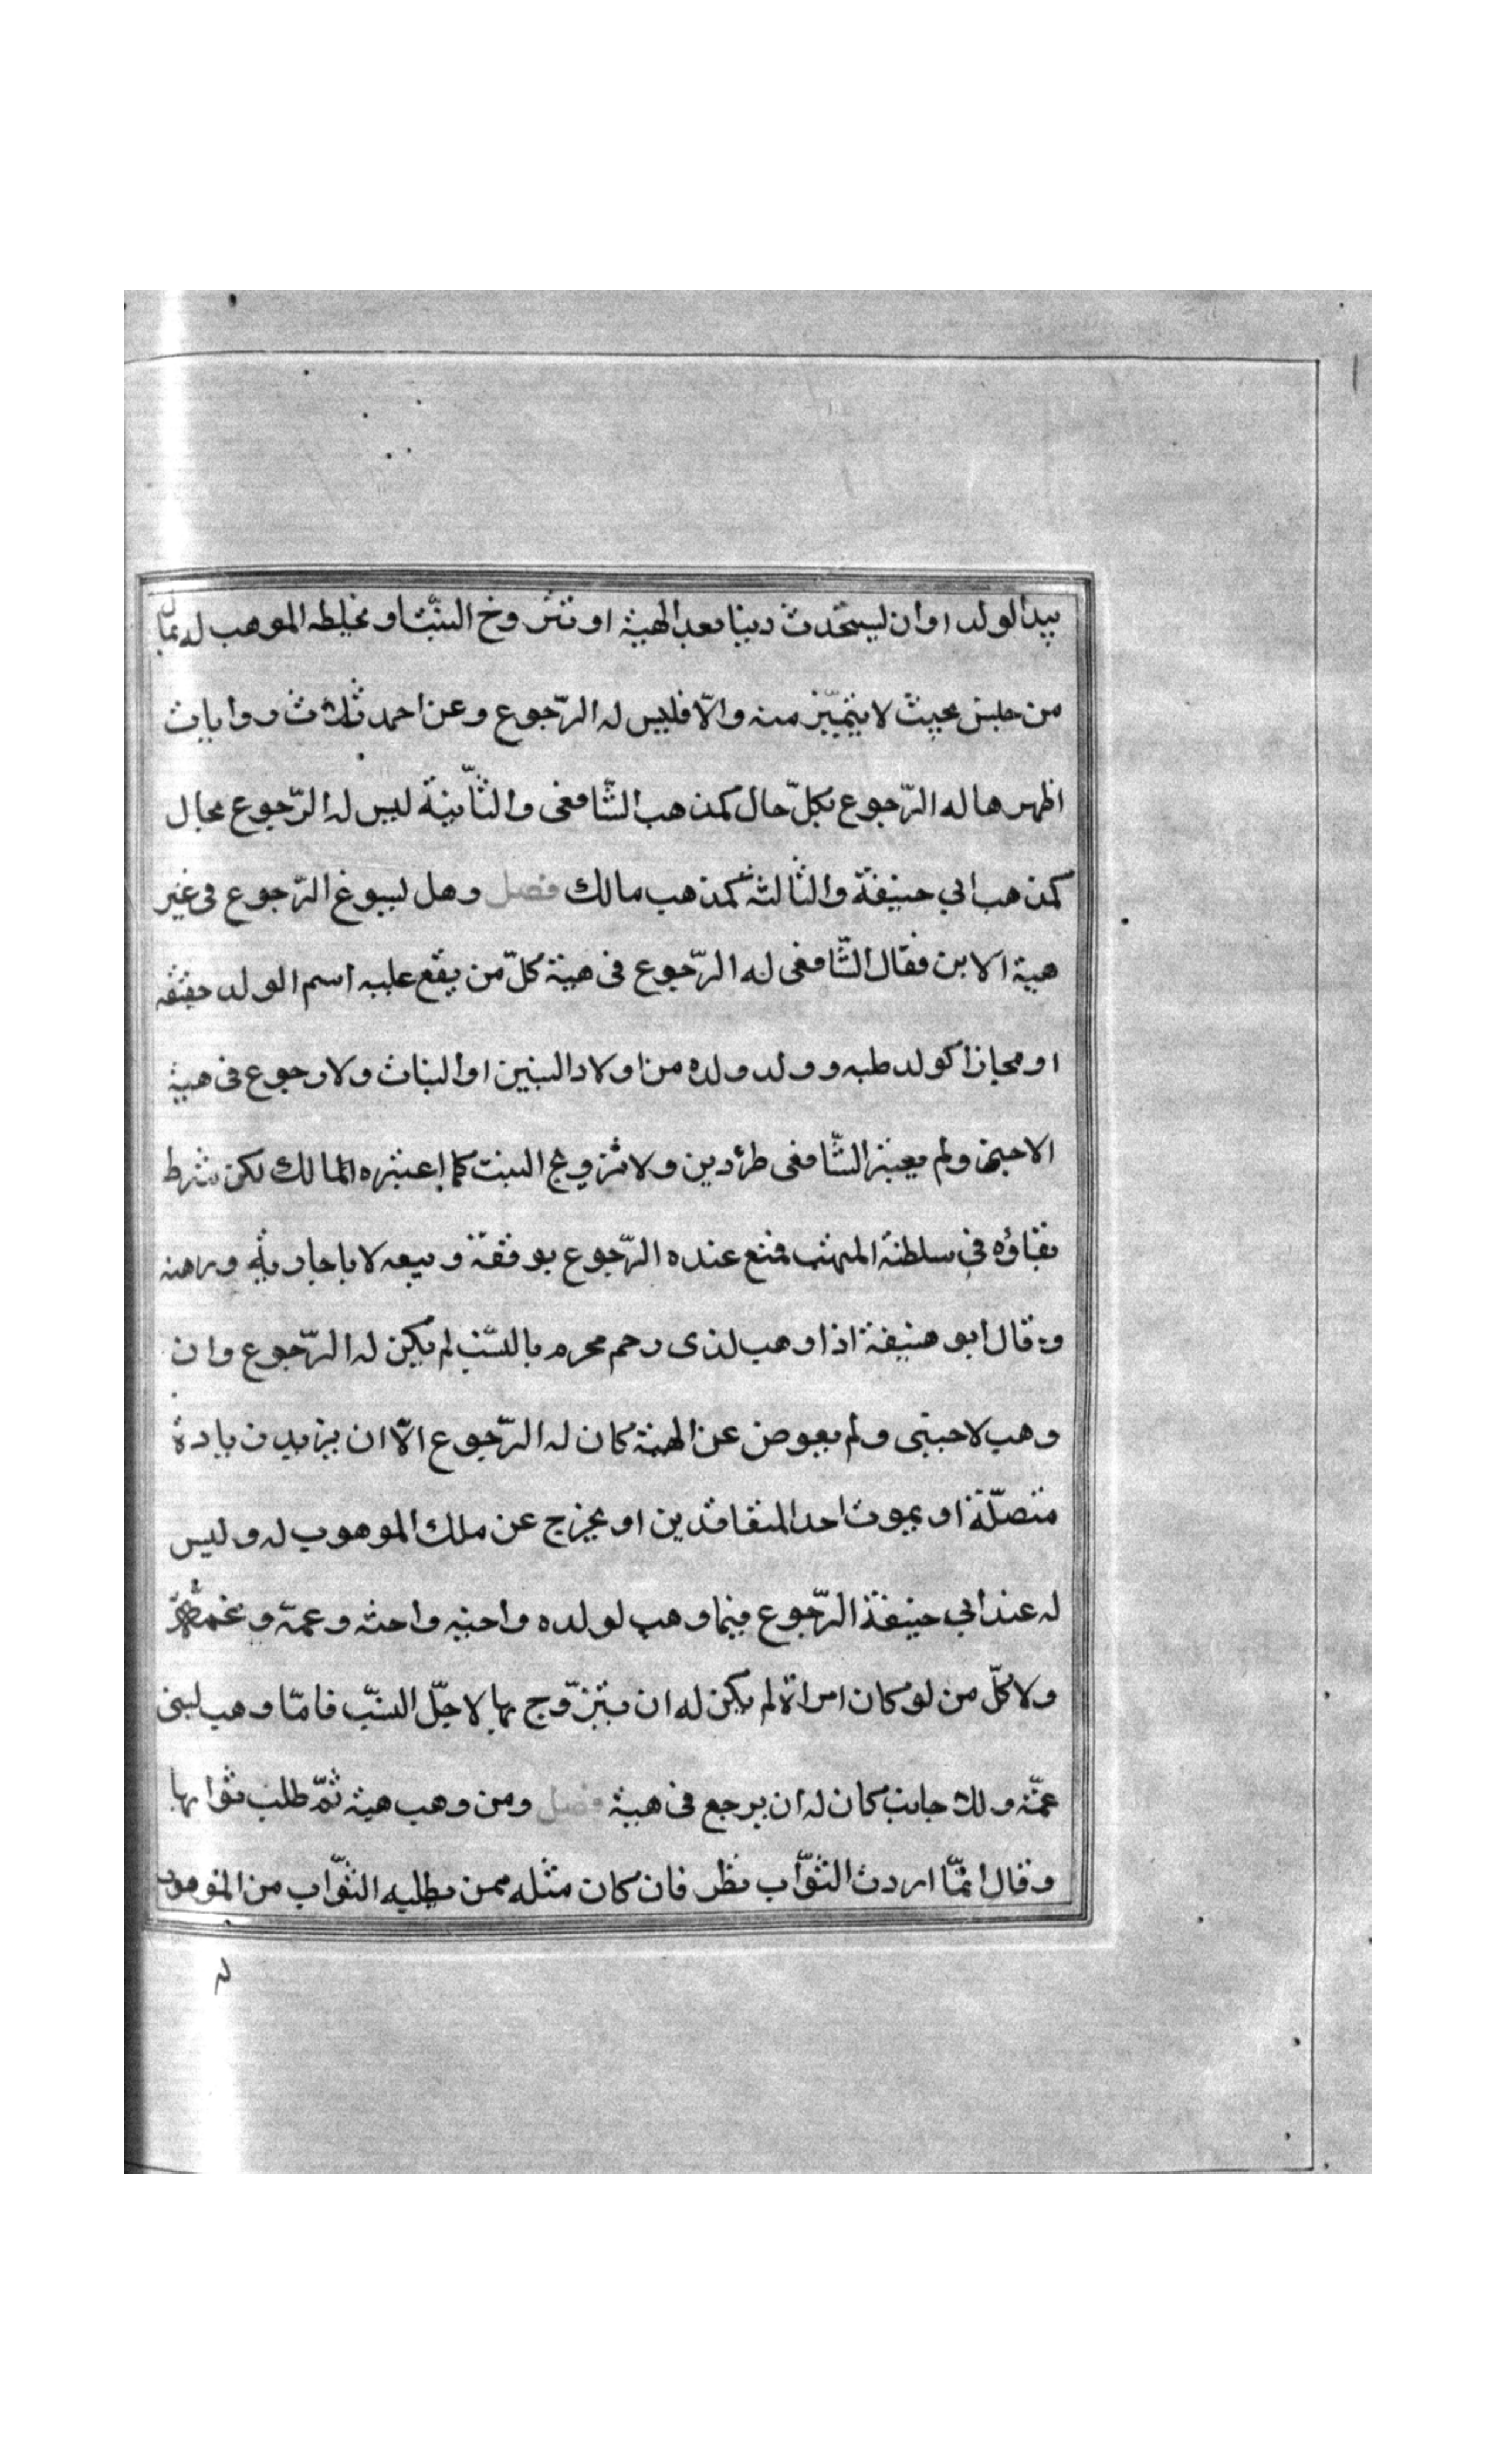 بيد الولد او ان يستحدث دينا بعد الهبة او تتزوج البنت او يخلطه الموهب له بمال
من جنس بحيث لا يتميّز منه والّا فليس له الرّجوع وعن احمد ثلاث روايات
اظهرها له الرّجوع بكلّ حال كمذهب الشّافعى والثّانية ليس له الرّجوع بحال
كمذهب ابي حنيفة والثالثة كمذهب مالك فصل وهل يسوغ الرّجوع فى غير
هبة الابن فقال الشّافعى له الرّجوع فى هبة كلّ من يقع عليه اسم الولد حقيقة
او مجازا كولد صلبه وولد ولده من اولاد البنين او البنات ولا رجوع فى هبة
الاجنبى ولم يعتبر الشّافعى طرؤ دين ولا تزويج البنت كما اعتبره المالك لكن شرط
بقاؤه فى سلطنة المتهب فمنع عنده الرّجوع بوقفه وبيعه لا باجارته ورهنه
وقال ابو حنيفة اذا وهب لذى رحم محرم بالنسب لم يكن له الرّجوع وان
وهب لاجنبى ولم يعوض عن الهبة كان له الرّجوع الّا ان يزيد زيادة
متصلّة او يموت احد المتعاقدين او يخرج عن ملك الموهوب له وليس
له عند ابي حنيفة الرّجوع فيما وهب لولده واخيه واخته وعمه وعمته
ولا كلّ من لو كان امراة لم يكن له ان يتزوّج بها لاجلّ النسب فامّا وهب لبنى
عمّه ولك جانب كان له ان يرجع فى هبة فصل ومن وهب هبة ثمّ طلب ثوابها
وقال انمّا اردت الثوّاب نظر فان كان مثله ممن يطلبه الثوّاب من الموهوب
له